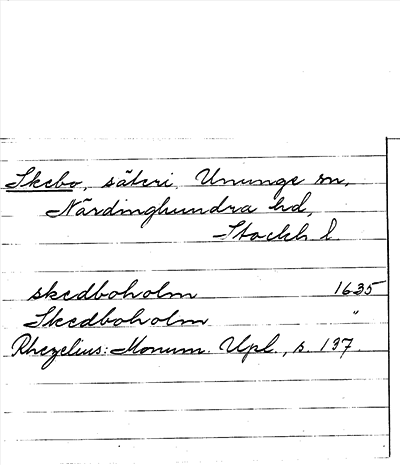 Skebo, säteri, Ununge sn,
Närdinghundra hd,
Stockh. l.
skedboholm 1635
Skedboholm "
Rhezelius: Monum. Upl., s. 137.